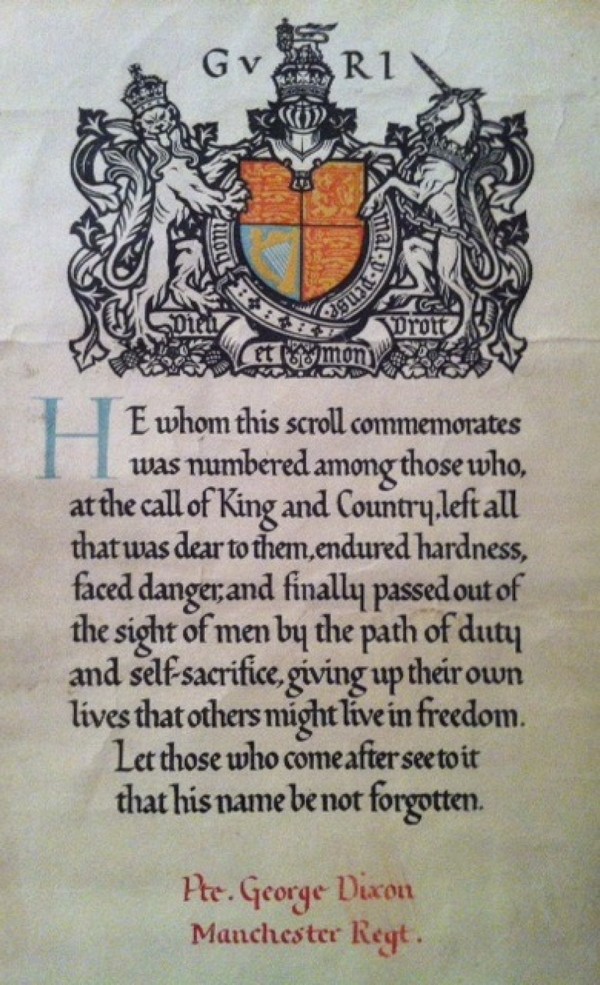 G V R I
honi mal·y·pense
Dieu Droit
et mon
HE whom this scroll commemorates
was numbered among those who,
at the call of King and Country, left all
that was dear to them, endured hardness,
faced danger, and finally passed out of
the sight of men by the path of duty
and self-sacrifice, giving up their own
lives that others might live in freedom.
Let those who come after see to it
that his name be not forgotten.
Pte. George Dixon
Manchester Regt.